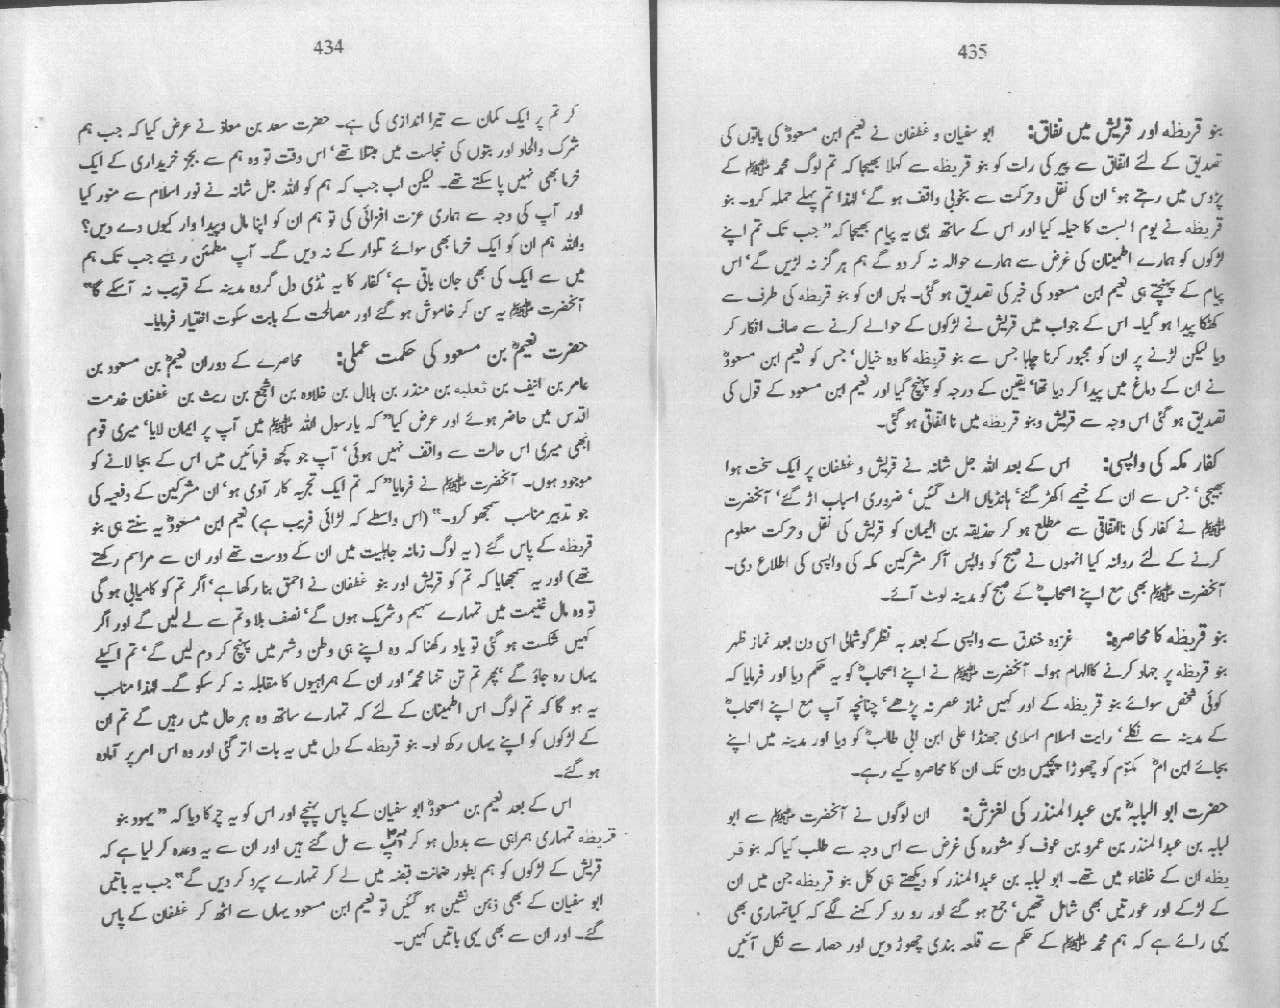 434
کر تم پر ایک کمان سے تیرا اندازی کی ہے۔ حضرت سعد بن معاذ نے عرض کیا کہ جب ہم
شرک والحاد اور بتوں کی نجاست میں مبتلا تھے، اس وقت تو وہ ہم سے بجز خریداری کے ایک
خرما بھی نہیں پا سکتے تھے۔ لیکن اب جب کہ ہم کو اللہ جل شانہ نے نور اسلام سے منور کیا
اور آپ کی وجہ سے ہماری عزت افزائی کی تو ہم ان کو اپنا مال و پیدا وار کیوں دے دیں؟
واللہ ہم ان کو ایک خرما بھی سوائے تلوار کے نہ دیں گے۔ آپ مطمئن رہیے جب تک ہم
میں سے ایک کی بھی جان باقی ہے، کفار کا یہ ٹڈی دل گروہ مدینہ کے قریب نہ آسکے گا"
آنحضرت ﷺ یہ سن کر خاموش ہو گئے اور مصالحت کے بابت سکوت اختیار فرمایا۔
حضرت نعیمؓ بن مسعود کی حکمت عملی: محاصرے کے دوران نعیمؓ بن مسعود بن
عامر بن انیف بن ثعلبہ بن منذر بن ہلال بن خلاوہ بن اشجع بن ریث بن غطفان خدمت
اقدس میں حاضر ہوئے اور عرض کیا" کہ یارسول اللہ ﷺ میں آپ پر ایمان لایا، میری قوم
ابھی میری اس حالت سے واقف نہیں ہوئی، آپ جو کچھ فرمائیں میں اس کے بجا لانے کو
موجود ہوں۔ آنحضرت ﷺ نے فرمایا" کہ تم ایک تجربہ کار آدمی ہو، ان مشرکین کے دفعیہ کی
جو تدبیر مناسب سمجھو کرو۔" (اس واسطے کہ لڑائی فریب ہے) نعیم ابن مسعودؓ یہ سنتے ہی بنو
قریظہ کے پاس گئے (یہ لوگ زمانہ جاہلیت میں ان کے دوست تھے اور ان سے مراسم رکھتے
تھے) اور یہ سمجھایا کہ تم کو قریش اور بنو غطفان نے احمق بنا رکھا ہے، اگر تم کو کامیابی ہو گی
تو وہ مال غنیمت میں تمہارے سہیم و شریک ہوں گے، نصف بلا وتم سے لے لیں گے اور اگر
کہیں شکست ہو گئی تو یاد رکھنا کہ وہ اپنے ہی وطن و شہر میں پہنچ کر دم لیں گے، تم اکیلے
یہاں رہ جاؤ گے، پھر تم تن تنہا محمدؐ اور ان کے ہمراہیوں کا مقابلہ نہ کر سکو گے۔ لہٰذا مناسب
یہ ہو گا کہ تم لوگ اس اطمینان کے لئے کہ تمہارے ساتھ وہ ہر حال میں رہیں گے تم ان
کے لڑکوں کو اپنے یہاں رکھ لو۔ بنو قریظہ کے دل میں یہ بات اتر گئی اور وہ اس امر پر آمادہ
ہو گئے۔
اس کے بعد نعیم بن مسعودؓ ابو سفیان کے پاس پہنچے اور اس کو یہ چر کا دیا کہ "یہود بنو
قریظہ تمہاری ہمراہی سے بددل ہو کر سے مل گئے ہیں اور ان سے یہ وعدہ کر لیا ہے کہ
قریش کے لڑکوں کو ہم بطور ضمانت قبضہ میں لے کر تمہارے سپرد کر دیں گے" جب یہ باتیں
ابو سفیان کے بھی ذہن نشین ہو گئیں تو نعیم ابن مسعود یہاں سے اٹھ کر غطفان کے پاس
گئے۔ اور ان سے بھی یہی باتیں کہیں۔
435
بنو قریظہ اور قریش میں نفاق: ابو سفیان و غطفان نے نعیم ابن مسعودؓ کی باتوں کی
تصدیق کے لئے اتفاق سے پیر کی رات کو بنو قریظہ سے کہلا بھیجا کہ تم لوگ محمد ﷺ کے
پڑوس میں رہتے ہو، ان کی نقل و حرکت سے بخوبی واقف ہو گے، لہٰذا تم پہلے حملہ کرو۔ بنو
قریظہ نے یوم السبت کا حیلہ کیا اور اس کے ساتھ ہی یہ پیام بھیجا کہ" جب تک تم اپنے
لڑکوں کو ہمارے اطمینان کی غرض سے ہمارے حوالہ نہ کر دو گے ہم ہر گز نہ لڑیں گے، اس
پیام کے پہنچتے ہی نعیم ابن مسعود کی خبر کی تصدیق ہو گئی۔ پس ان کو بنو قریظہ کی طرف سے
کھٹکا پیدا ہو گیا۔ اس کے جواب میں قریش نے لڑکوں کے حوالے کرنے سے صاف انکار کر
دیا لیکن لڑنے پر ان کو مجبور کرنا چاہا جس سے بنو قریظہ کا وہ خیال، جس کو نعیم ابن مسعودؓ
نے ان کے دماغ میں پیدا کر دیا تھا، یقین کے درجہ کو پہنچ گیا اور نعیم ابن مسعود کے قول کی
تصدیق ہو گئی اس وجہ سے قریش و بنو قریظہ میں نا اتفاقی ہو گئی۔
کفار مکہ کی واپسی: اس کے بعد اللہ جل شانہ نے قریش و غطفان پر ایک سخت ہوا
بھیجی، جس سے ان کے خیمے اکھڑ گئے، ہانڈیاں الٹ گئیں، ضروری اسباب اڑ گئے، آنحضرت
ﷺ نے کفار کی نااتفاقی سے مطلع ہو کر حذیفہ بن الیمان کو قریش کی نقل و حرکت معلوم
کرنے کے لئے روانہ کیا انہوں نے صبح کو واپس آکر مشرکین مکہ کی واپسی کی اطلاع دی۔
آنحضرت ﷺ بھی مع اپنے اصحابؓ کے صبح کو مدینہ لوٹ آئے۔
بنو قریظہ کا محاصرہ: غزوہ خندق سے واپسی کے بعد بہ نظر گوشمالی اسی دن بعد نماز ظہر
بنو قریظہ پر جہاد کرنے کا الہام ہوا۔ آنحضرت ﷺ نے اپنے اصحابؓ کو یہ حکم دیا اور فرمایا کہ
کوئی شخص سوائے بنو قریظہ کے اور کہیں نماز عصر نہ پڑھے، چنانچہ آپ مع اپنے اصحابؓ
کے مدینہ سے نکلے، رایت اسلام اسلامی جھنڈا علی ابن ابی طالبؓ کو دیا اور مدینہ میں اپنے
بجائے ابن امؓ مکتوم کو چھوڑا پچیس دن تک ان کا محاصرہ کیے رہے۔
حضرت ابو البابہؓ بن عبدالمنذر کی لغزش: ان لوگوں نے آنحضرت ﷺ سے ابو
لبابہ بن عبدالمنذر بن عمرو بن عوف کو مشورہ کی غرض سے اس وجہ سے طلب کیا کہ بنو قر
یظہ ان کے خلفاء میں تھے۔ ابو لبابہ بن عبدالمنذر کو دیکھتے ہی کل بنو قریظہ جن میں ان
کے لڑکے اور عورتیں بھی شامل تھیں، جمع ہو گئے اور رو رد کر کہنے لگے کہ کیا تمہاری بھی
یہی رائے ہے کہ ہم محمد ﷺ کے حکم سے قلعہ بندی چھوڑ دیں اور حصار سے نکل آئیں